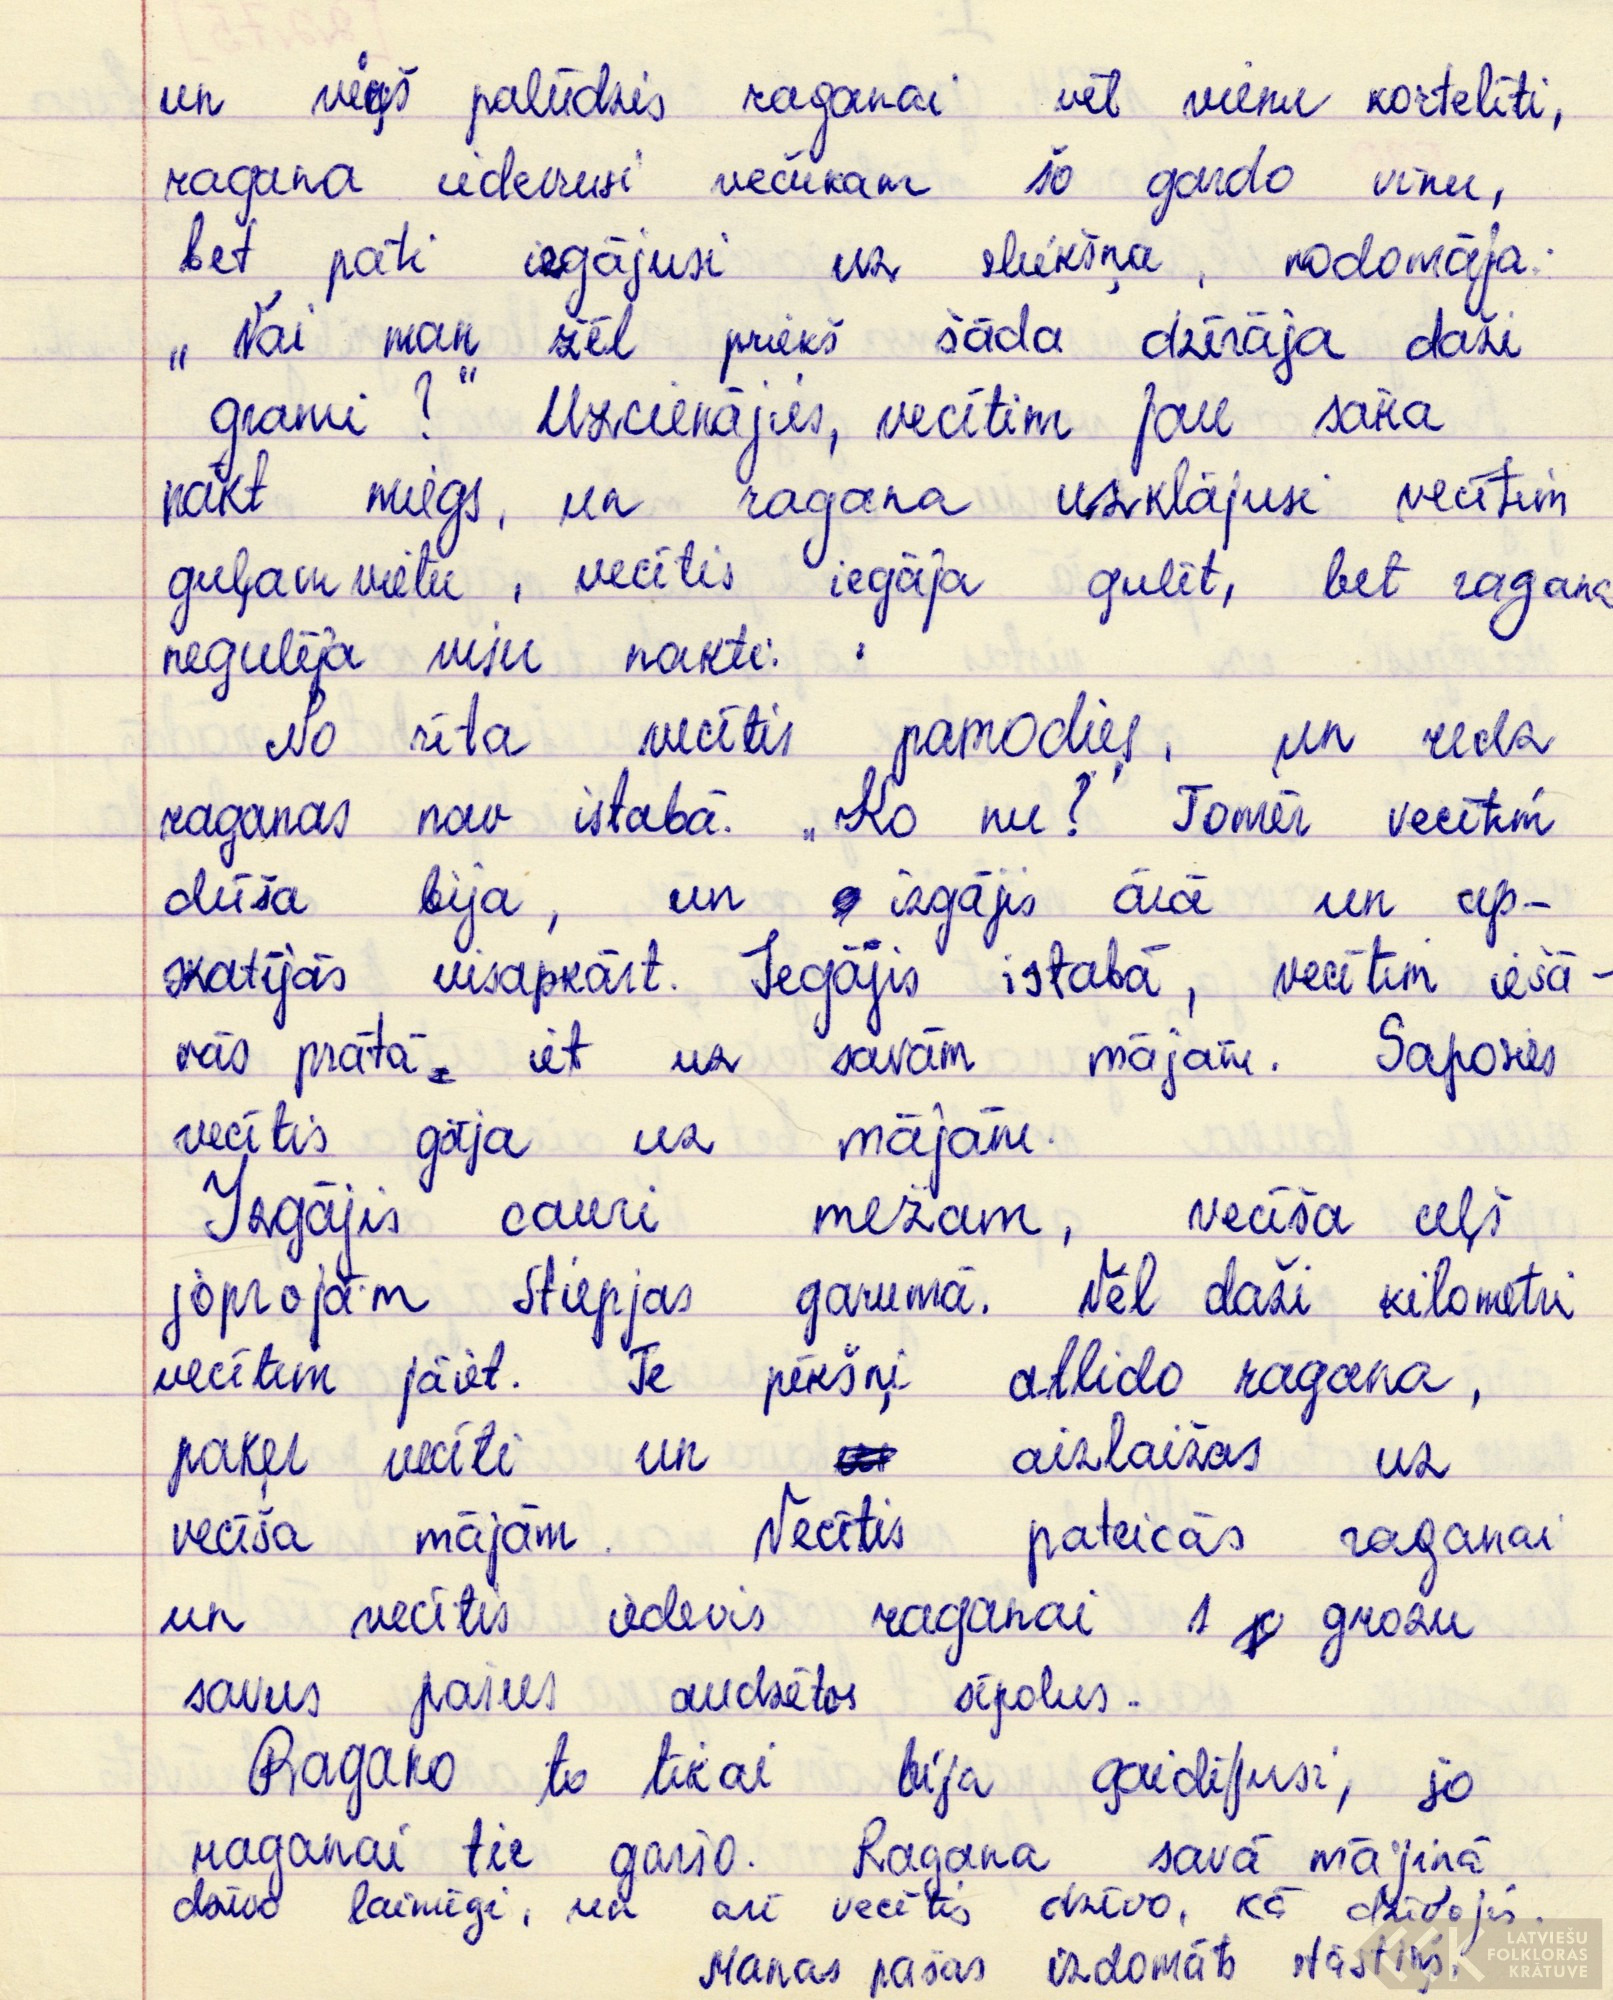 un viņš palūdzis raganai vēl vienu kortelīti,
ragana iedevusi večukam šo gardo vīnu,
bet pati iegājusi uz slieksņa, nodomāja:
„Vai man žēl priekš šāda dzērāja daži
grami?" Uzcienājies, vecītim jau sāka
nākt miegs, un ragana uzklājusi vecītim
guļamvietu, vecītis iegāja gulēt, bet ragana
negulēja visu nakti.
No rīta vecītis pamodies, un redz
raganas nav istabā. „Ko nu? Tomēr vecītim
dūša bija, un izgājis ārā un ap-
skatījās visapkārt. Iegājis istabā, vecītim iešā-
vās prātā iet uz savām mājām. Saposies
vecītis gāja uz mājām.
Izgājis cauri mežam, vecīša ceļš
joprojām stiepjas garumā. Vēl daži kilometri
vecītim jāiet. Te pēkšņi atlido ragana,
paķer vecīti un aizlaižas uz
vecīša mājām. Vecītis pateicās raganai
un vecītis iedevis raganai 1 grozu
savus pašus audzētos sīpolus.
Ragana to tikai bija gaidījusi, jo
raganai tie garšo. Ragana savā mājiņā
dzīvo laimīgi, un arī vecītis dzīvo, kā dzīvojis.
Manas pašas izdomāts stāstiņš.
LATVIEŠU
FOLKLORAS
KRĀTUVE